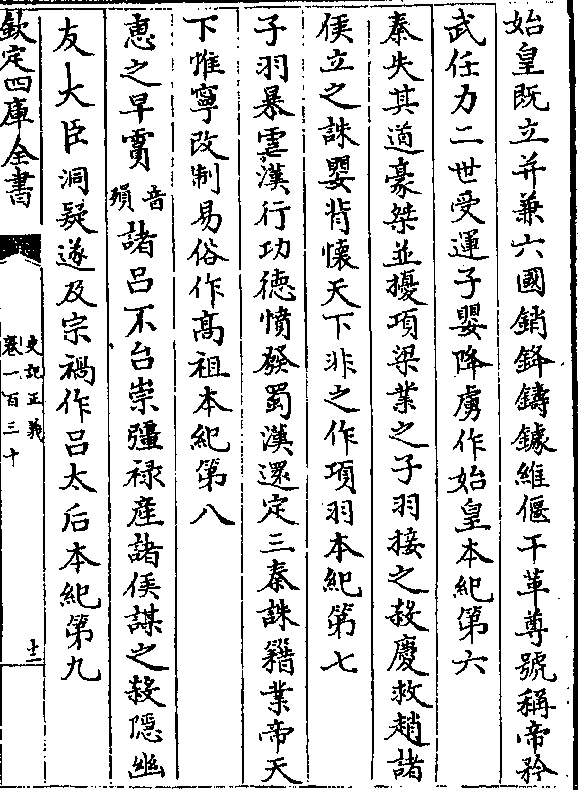 始皇既立并兼六國銷鋒鑄鐻維偃干革尊號稱帝矜
武任力二世受運子嬰降虜作始皇本紀第六
秦失其道豪桀並擾項梁業之子羽接之殺慶救趙諸
侯立之誅嬰背懷天下非之作項羽本紀第七
子羽暴虐漢行功德憤發蜀漢還定三秦誅籍業帝天
下惟寧改制易俗作髙祖本紀第八
惠之早霣音殞諸呂不台崇彊禄産諸侯謀之殺隱幽
友大臣洞疑遂及宗禍作呂太后本紀第九
欽定四庫全書
史記正義
卷一百三十
十二